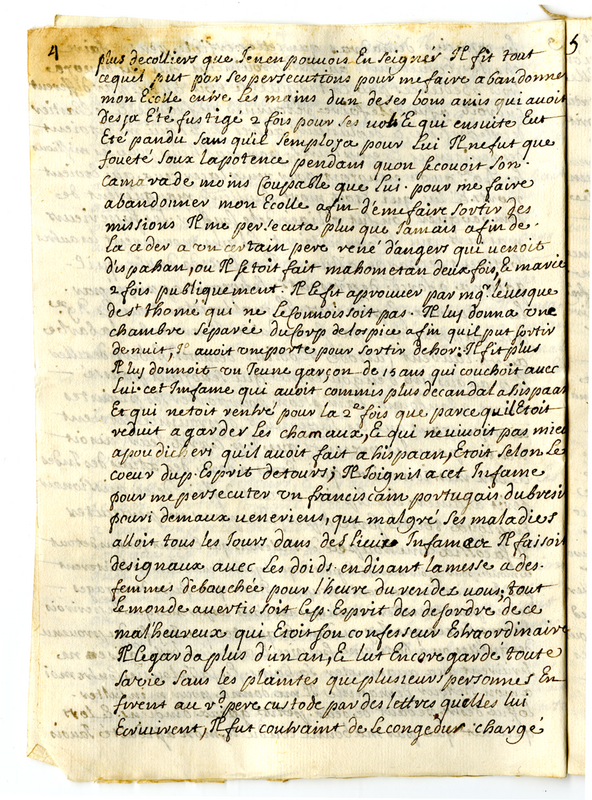 4
5
plus decolliers que Jenen pouvois Enseigner Il fit tout
cequil put par ses persecutions pour me faire abandonner
mon Ecolle entre les mains dun de ses bons amis qui avoit
Desja Eté fustigé 2 fois pour ses vols & qui ensuite Eut
Eté pandu Sans quil Semploja pour Lui Il ne fut que
foueté soux la potence pendant quon secouoit son
camarade moins Coupable que Lui. pour me faire
abandonner mon Ecolle afin de me faire Sortir des
missions Il me persecuta plus que Jamais afin de
La ceder a vn certain pere rené d'angers qui venoit
d'ispahan, ou Il s'etoit fait mahometan deux fois, & marié
2 fois publiquement. Il le fit aprouver par mgr. leveque
de st. thomé qui ne le connoissoit pas. Il luj donna vne
chambre séparée du Corp de lospice afin quil put sortir
de nuit, Il avoit vne porte pour sortir dehor; Il fit plus
Il luj donnoit vn Jeune garçon de 15 ans qui couchoit avec
Lui. cet Infame qui avoit commis plus de candal a hispaan
Et qui netoit rentré pour la 2e fois que parce quil Etoit
reduit a garder Les chamaux, & qui ne vivoit pas mieu
a poudicheri qu'il avoit fait a hispaan, Etoit Selon Le
coeur du p. Esprit de tours; Il Joignit a cet Infame
pour me persecuter vn franciscain portugais du bresil
pouri demaux veneriens, qui malgré Ses maladies
alloit tous les Jours dans des lieux Infames Il faisoit
designaux avec Les doids en disant la messe a des
femmes débauchée pour l'heure du rendez vous; tout
Le monde avertissoit le p. Esprit des desordre de ce
mal'heureux qui Etoit son confesseur Extraordinaire
Il le garda plus d'un an, & lut Encore garde toute
sa vie Sans les plaintes que plusieurs personnes En
firent au rd. pere custode par des lettres quelles lui
Ecrivirent, Il fut contraint de le congedier chargé